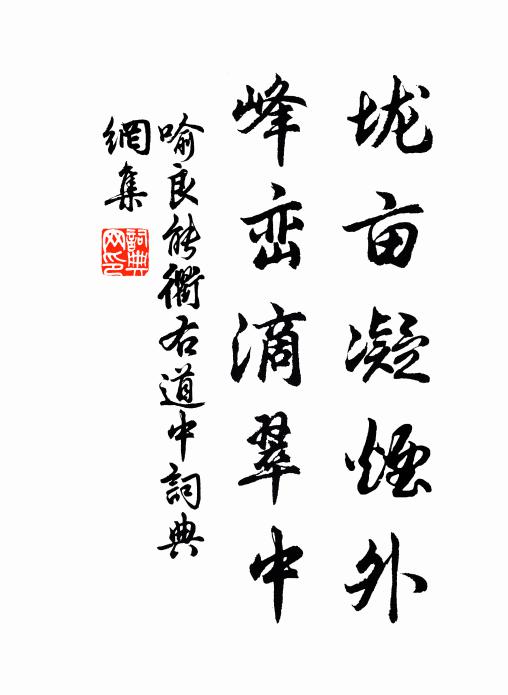 垅亩凝煙外
峰峦滴翠中
喻良能衢右道中詞典
網集
詞典
网印